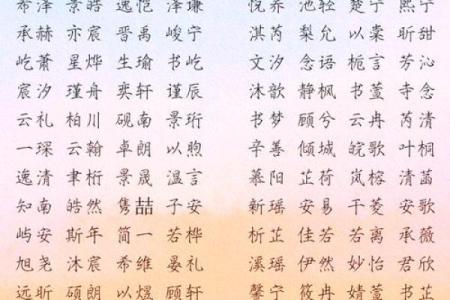 希泽 景皓 逸恺 泽谦 悦荞 池轻 楚宁 熙宁
承赫 亦宸 晋禹 峻宁 淇芮 梨允 以棠 昕甜
屹萧 星烨 生瑜 书屹 文汐 念语 栀言 芳沁
宸汐 瑾舟 奕轩 谨辰 沐歆 静枫 书萱 寺念
云礼 柏川 砚南 景珩 书梦 顾兮 云冉 芮清
一琛 云翰 卓朗 以煦 辛善 倾城 皖歌 叶桐
逸清 聿桁 景晟 温言 慕阳 芷荷 岚榕 清菡
知南 皓然 隽喆 子安 新瑶 安易 千菱 安歌
屿安 斯年 简一 若桦 析芷 佳若 若离 承薇
旭尧 沐宸 希维 晏礼 溪瑶 伊然 妙怡 君欣
远昕 硕朗 以煜 顾轩 馨宁 筱冉 婧萱 书芷